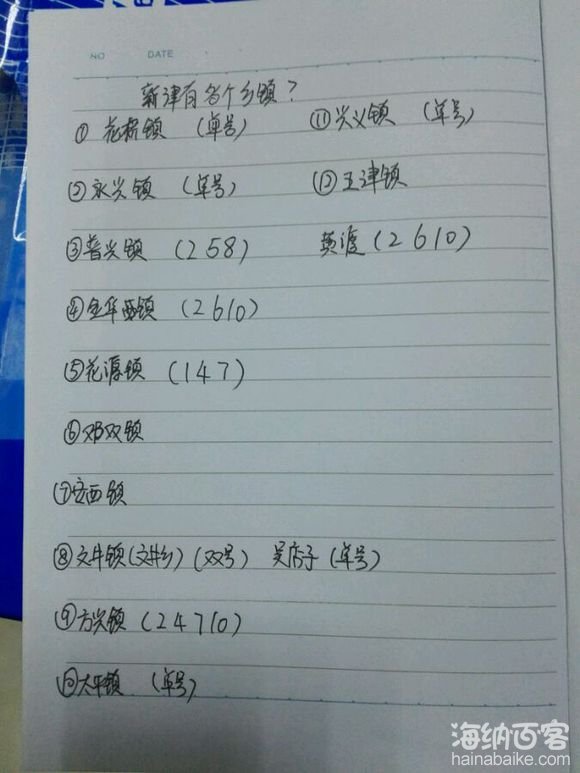 NO DATE
新津有各个乡镇？
① 花桥镇 （单号）
② 永兴镇 （单号）
③ 普兴镇 （258）
④ 金华镇 （2610）
⑤ 花源镇 （147）
⑥ 邓双镇
⑦ 安西镇
⑧ 文井镇（文井乡）（双号） 吴店子（单号）
⑨ 方兴镇 （24710）
⑩ 太平镇 （单号）
⑪ 兴义镇 （单号）
⑫ 五津镇
黄渡（2610）
海纳百客
hainabaike.com